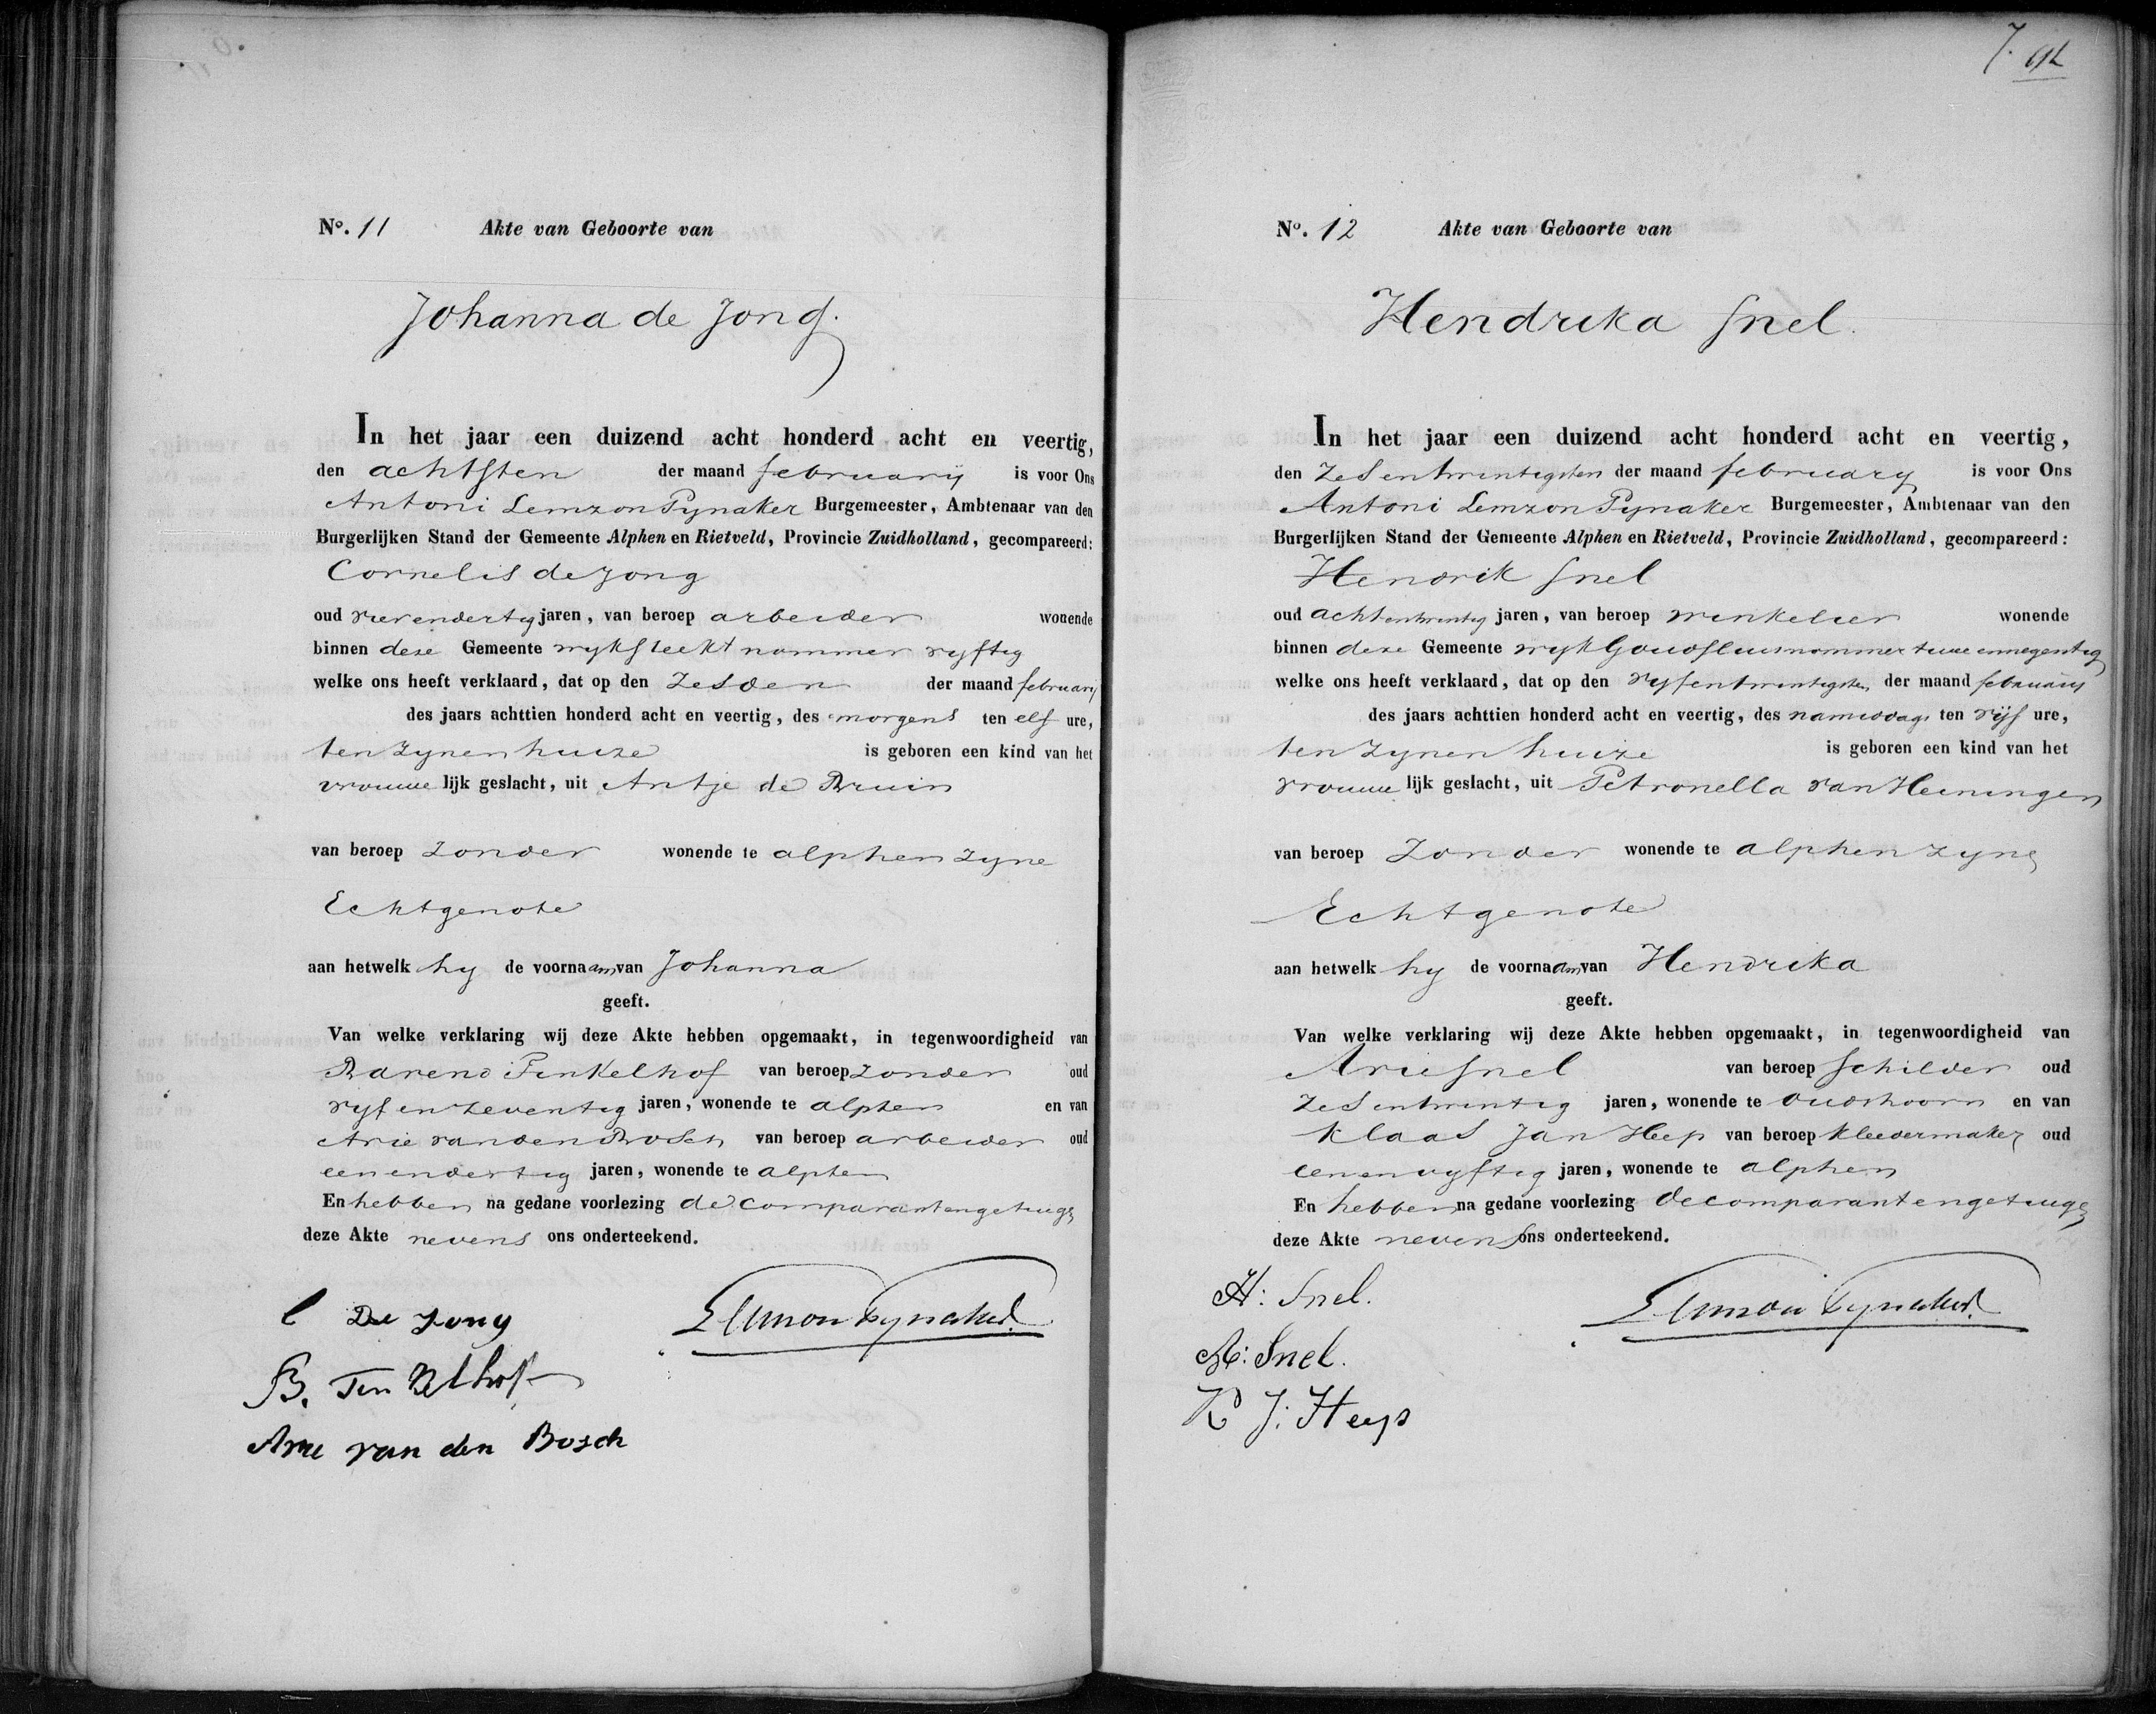 No. 11 Akte van Geboorte van
Johanna de Jong.
In het jaar een duizend acht honderd acht en veertig,
den achtsten der maand february is voor Ons
Antoni Lemzon Pynaker Burgemeester, Ambtenaar van den
Burgerlijken Stand der Gemeente Alphen en Rietveld, Provincie Zuidholland, gecompareerd:
Cornelis de Jong
oud vierendertig jaren, van beroep arbeider wonende
binnen deze Gemeente wyk steekt nommer vyftig
welke ons heeft verklaard, dat op den Zesden der maand february
des jaars achttien honderd acht en veertig, des morgens ten elf ure,
ten zynen huize is geboren een kind van het
vrouwe lijk geslacht, uit Antje de Bruin
van beroep Zonder wonende te alphen zyne
Echtgenote
aan hetwelk hy de voornaam van Johanna
geeft.
Van welke verklaring wij deze Akte hebben opgemaakt, in tegenwoordigheid van
Barend Finkelhof van beroep Zonder oud
vyf en zeventig jaren, wonende te alphen en van
Arie van den Bosch van beroep arbeider oud
eenendertig jaren, wonende te alphen
En hebben na gedane voorlezing de comparant en getuigen
deze Akte nevens ons onderteekend.
C De Jong
B. Finkelhof
Arie van den Bosch
Lemzon Pynaker
7.
No. 12 Akte van Geboorte van
Hendrika Snel.
In het jaar een duizend acht honderd acht en veertig,
den Zesentwintigsten der maand february is voor Ons
Antoni Lemzon Pynaker Burgemeester, Ambtenaar van den
Burgerlijken Stand der Gemeente Alphen en Rietveld, Provincie Zuidholland, gecompareerd:
Hendrik Snel
oud achtentwintig jaren, van beroep winkelier wonende
binnen deze Gemeente wyk Goudsluis nommer twee ennegentig
welke ons heeft verklaard, dat op den vyfentwintigsten der maand february
des jaars achttien honderd acht en veertig, des namiddags ten vyf ure,
ten zynen huize is geboren een kind van het
vrouwe lijk geslacht, uit Petronella van Heiningen
van beroep Zonder wonende te alphen zyne
Echtgenote
aan hetwelk hy de voornaam van Hendrika
geeft.
Van welke verklaring wij deze Akte hebben opgemaakt, in tegenwoordigheid van
Arie Snel van beroep Schilder oud
Zesentwintig jaren, wonende te Oudshoorn en van
Klaas Jan Heep van beroep kleedermaker oud
eenenvyftig jaren, wonende te alphen
En hebben na gedane voorlezing de comparant en getuigen
deze Akte nevens ons onderteekend.
H: Snel.
A: Snel.
K J: Heys
Lemzon Pynaker